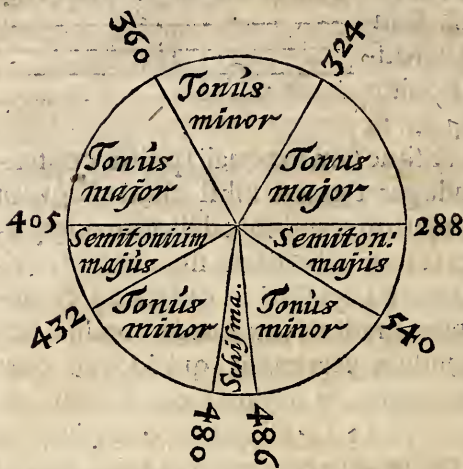 360
324
Tonús
minor
Tonús
major
Tonus
major
405
288
Semitonium
majús
Semiton:
majús
432
Tonús
minor
Schisma.
Tonús
minor
540
480
486